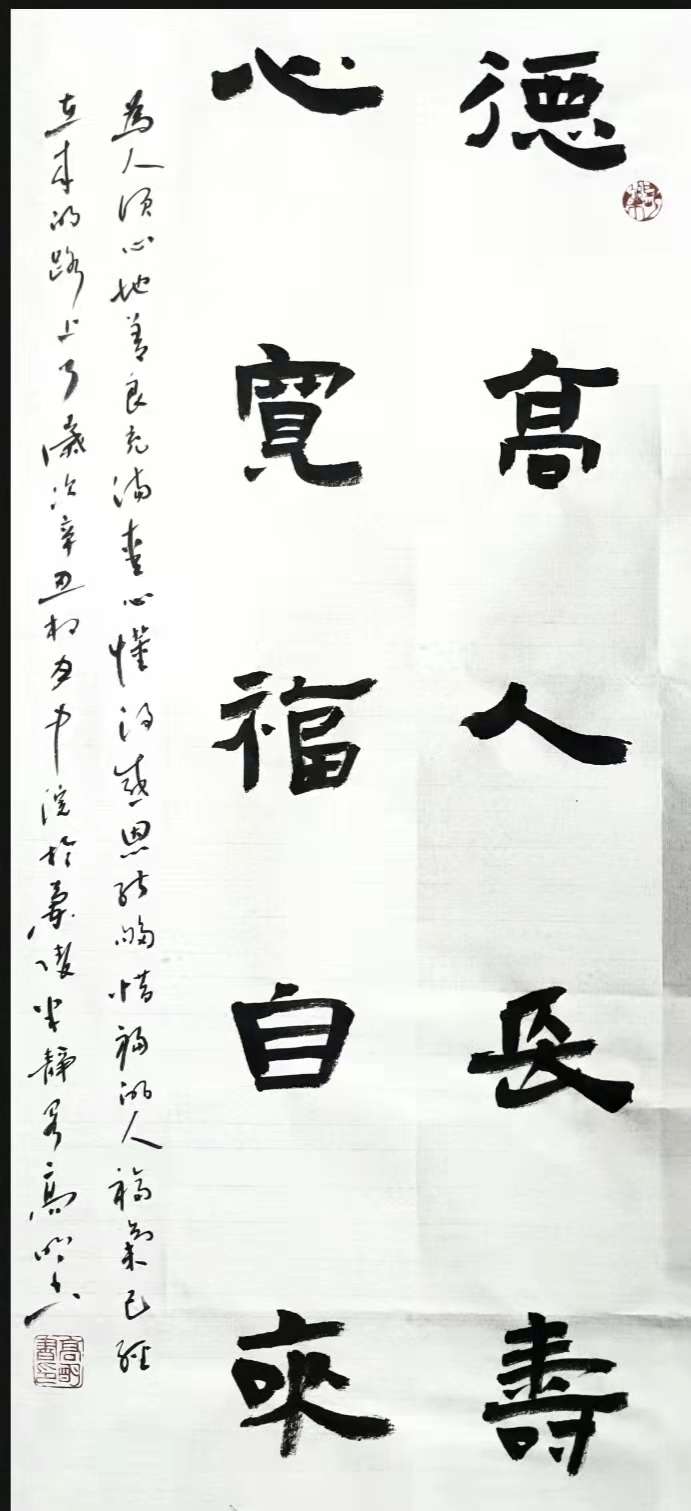 德高人長壽
心寬福自來
為人須心地善良充滿愛心懂得感恩能夠惜福的人福氣已經
在來的路上了歲次辛丑初夏中浣於壽
靜 高